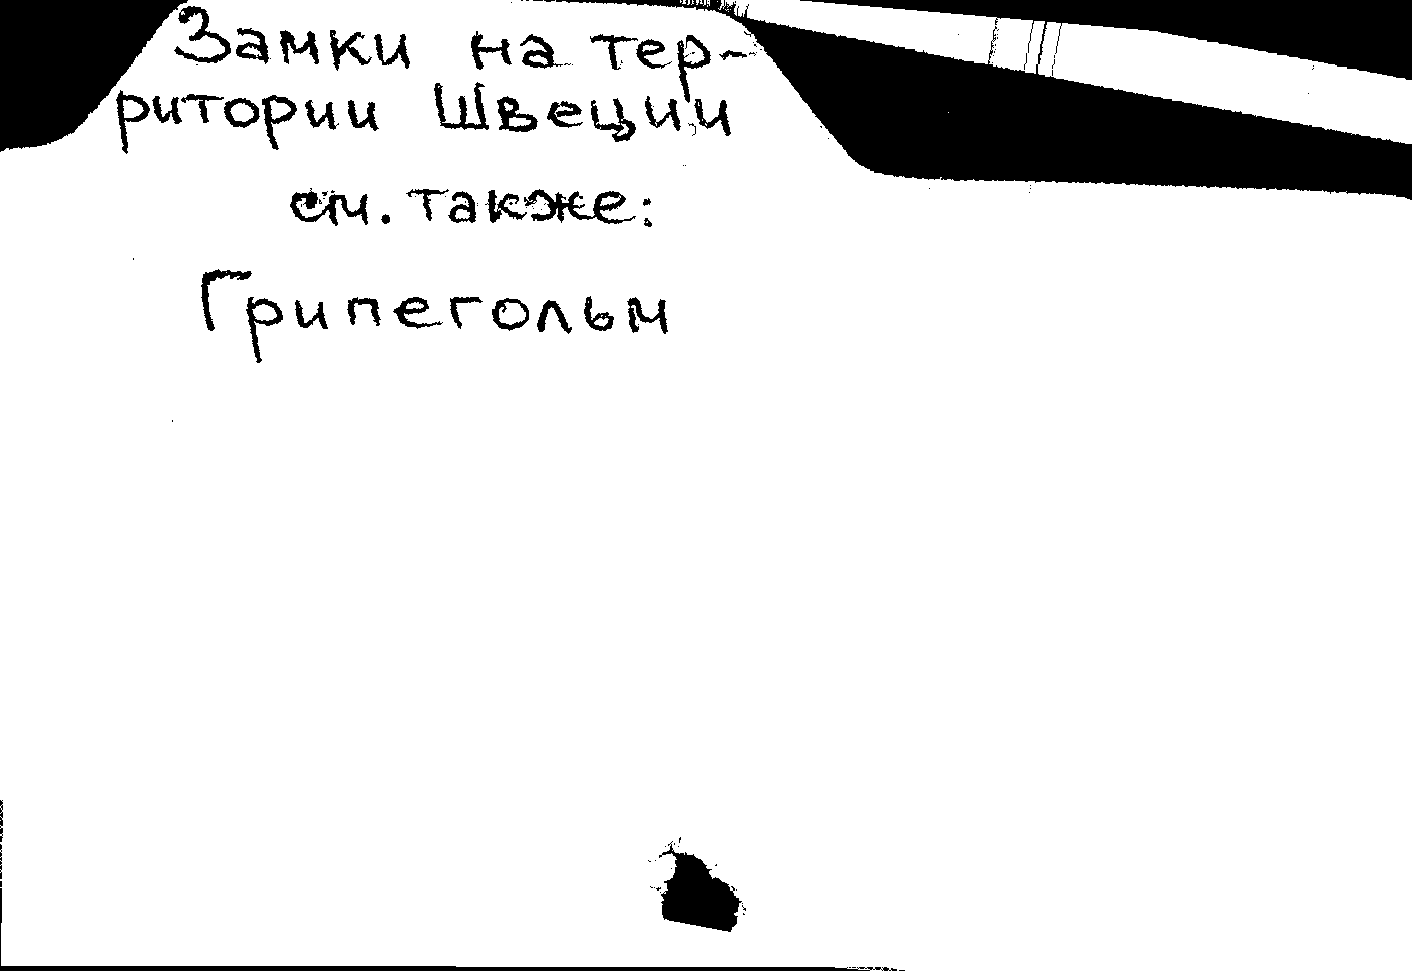 Замки на тер-
ритории Швеции
см. также:
Грипегольм